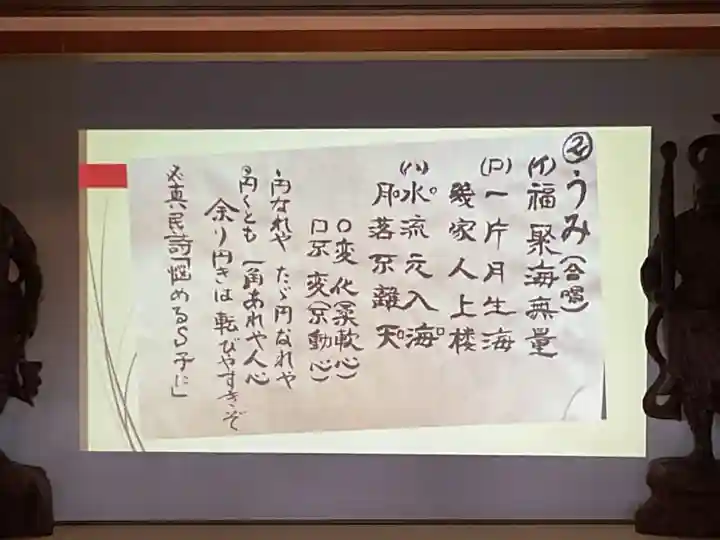 ②うみ(合唱)
(イ)福聚海無量
(ロ)一片月生海
幾家人上楼
(ハ)水流元入海
月落不離天
○変化(柔軟心)
□不変(不動心)
円なれや たゞ円なれや
円くとも 一角あれや人心
余り円きは 転びやすきぞ
真民詩「悩めるS子に」